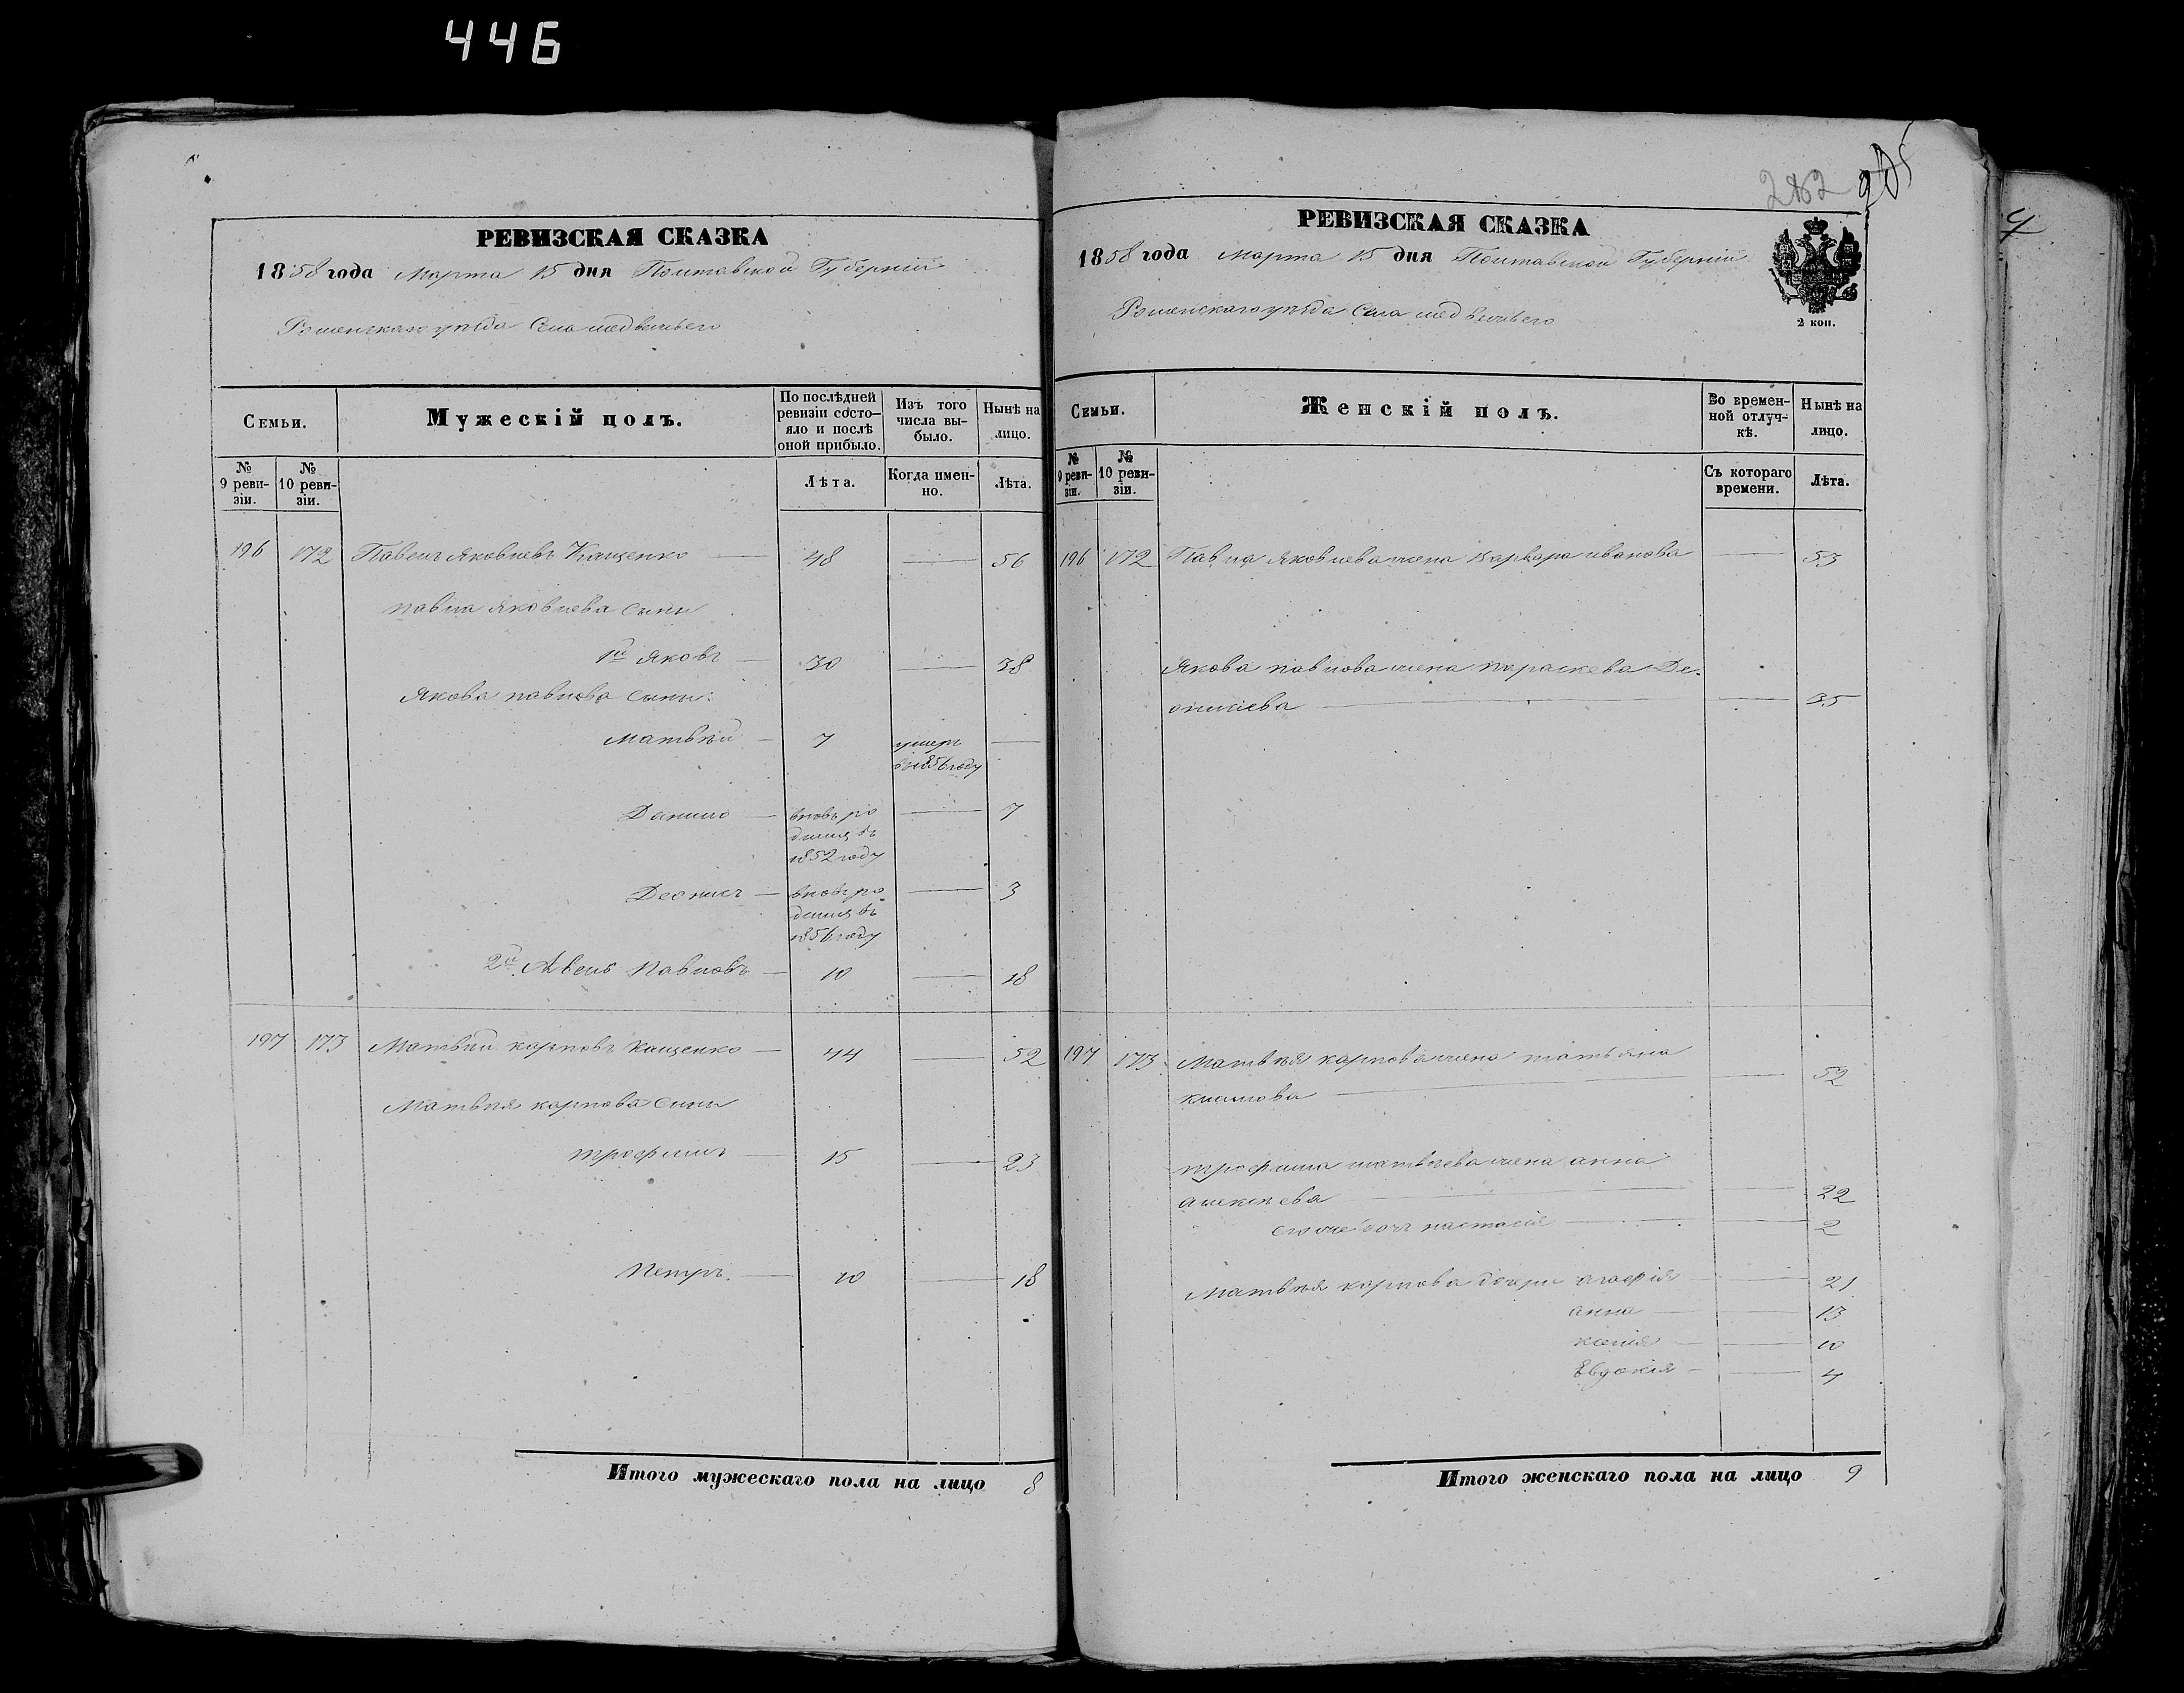 446
РЕВИЗСКАЯ СКАЗКА
1858 года Марта 15 дня Полтавской Губерніи
Роменскаго уѣзда Села медвежьего
Семьи.
Мужескій полъ.
По послѣдней ревизіи состояло и послѣ оной прибыло.
Изъ того числа выбыло.
Нынѣ на лицо.
№ 9 ревизіи.
№ 10 ревизіи.
Лѣта.
Когда именно.
Лѣта.
196 172 Павелъ Яковлевъ Кащенко — 48 — 56
павла Яковлева сыны
1й Яковъ — 30 — 38
Якова павлова сыны:
Матвѣй — 7 умеръ —
в 1856 году
Данило — вновь ро — 7
дился въ
1852 году
Деонис — вновь ро — 3
дился въ
1856 году
2й Авель Павловъ — 10 — 18
197 173 Матвѣй карповъ Кащенко — 44 — 52
Матвѣя карпова сыны
трофимъ — 15 — 23
Петръ. — 10 — 18
Итого мужескаго пола на лицо 8
282
РЕВИЗСКАЯ СКАЗКА
1858 года Марта 15 дня Полтавской Губерніи
Роменскаго уѣзда Села медвежьего
2 коп.
Семьи.
Женскій полъ.
Во временной отлучкѣ.
Нынѣ на лицо.
№ 9 ревизіи.
№ 10 ревизіи.
Съ котораго времени.
Лѣта.
196 172 Павла Яковлева жена Варвара иванова — 53
Якова павлова жена параскева Де-
онисіева — — 35
197 173 Матвѣя карпова жена татьяна
климова — — 52
трофима матвѣева жена анна
алексѣева — — 22
его же дочь настасія — — 2
Матвѣя карпова дочери агафія — — 21
анна — — 13
ксенія — — 10
Евдокія — — 4
Итого женскаго пола на лицо 9